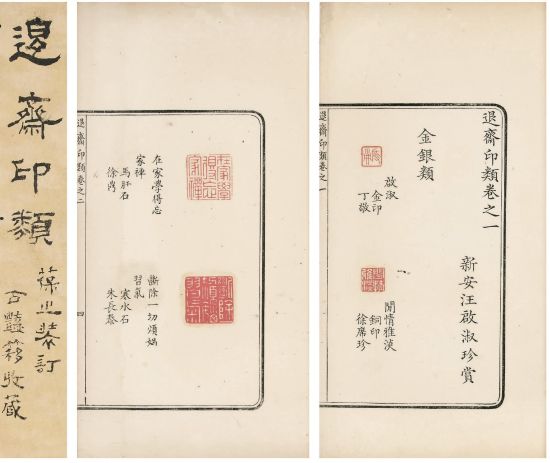 退齋印類
葆之裝訂
古簃收藏
在家學得忘
家禪
馬肝石
斷除一切煩惱
習氣
寒水石
朱長泰
退齋印類卷之二
四
退齋印類卷之一
新安汪啟淑珍賞
金銀類
啟淑
金印
丁敬
閒情雅淡
銅印
徐席珍
退齋印類卷之一